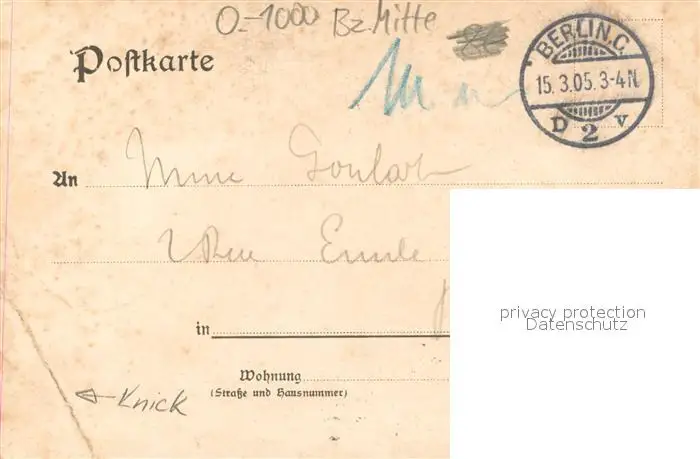 O-1000 Bz. Mitte
Postkarte
BERLIN.C.
15. 3.05. 3-4N
D 2 v
An Mme
Rue
in
Wohnung
(Straße und Hausnummer)
Knick
privacy protection
Datenschutz